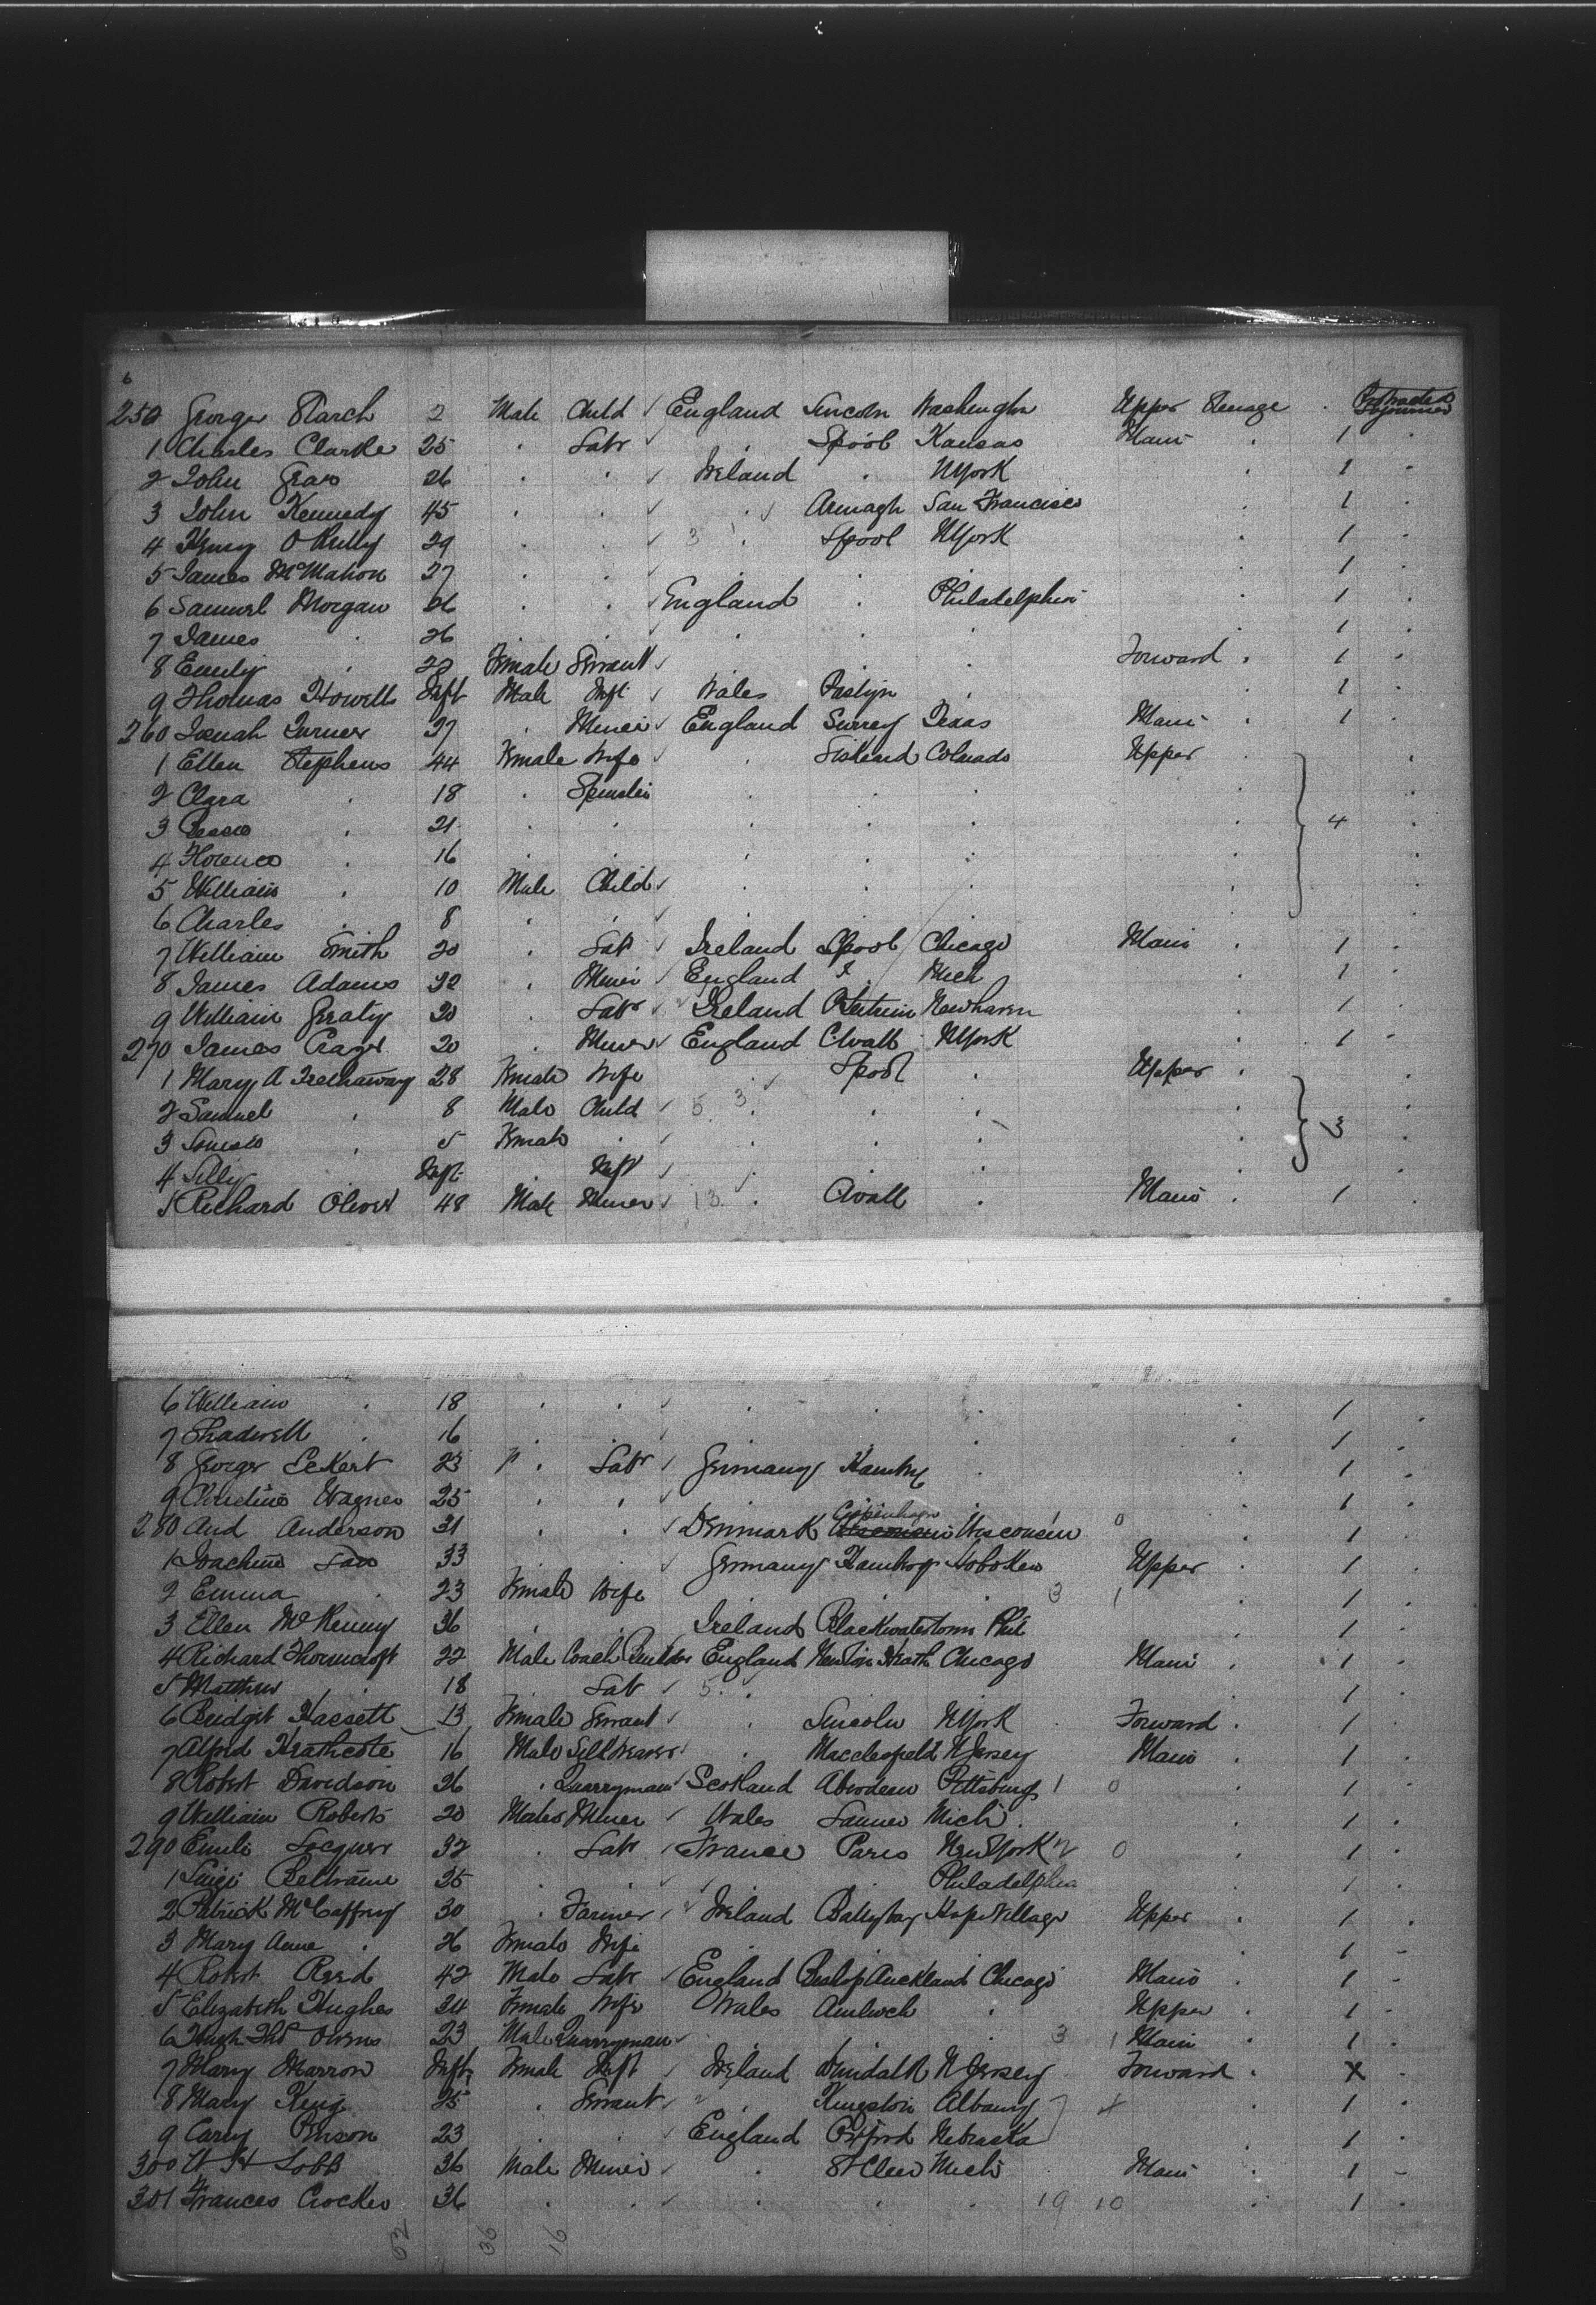 6
250 George Starch 2 Male Child ✓ England Lincoln Washington Upper Steerage . Protracted Sojourner
1 Charles Clarke 25 . Labr ✓ . Lpool Kansas Main . 1 .
2 John Gray 26 . . ✓ Ireland . NYork . 1 .
3 John Kennedy 45 . . ✓ . ✓ Armagh San Francisco . 1 .
4 Henry O Reilly 29 . . ✓ 3 . Lpool NYork . 1 .
5 James McMahon 27 . . ✓ . . . . 1 .
6 Samuel Morgan 26 . . ✓ England . Philadelphia . 1 .
7 James . 26 . . ✓ . . . . 1 .
8 Emily . 22 Female Servant ✓ . . . Forward . 1 .
9 Thomas Howells Inft Male Inft ✓ Wales . . 1 .
260 Turner 27 . Miner ✓ England Surrey Texas Main . 1 .
1 Ellen Stephens 44 Female Wife ✓ . Liskeard Colorado Upper . .
2 Clara . 18 . Spinster . . . . .
3 Bessie . 21 . . . . . . 4 .
4 Florence . 16 . . . . . . .
5 William . 10 Male Child ✓ . . . . .
6 Charles . 8 . . ✓ . . . .
7 William Smith 20 . Labr ✓ Ireland Lpool Chicago Main . 1 .
8 James Adams 32 . Miner ✓ England . Mich . 1 .
9 William Geraty 20 . Labr ✓ Ireland Newhaven . 1 .
270 James Craze 20 . Miner ✓ England Cwall NYork . 1 .
1 Mary A Trethaway 28 Female Wife . ✓ Lpool . Upper . .
2 Samuel . 8 Male Child ✓ 5 3 . . . . .
3 . 5 Female . ✓ . . . . 3 .
4 Lilly Inft . Inft ✓ . . . . .
5 Richard Oliver 48 Male Miner ✓ 13 . Cwall . Main . 1 .
6 William . 18 . . ✓ . . . . 1 .
7 Shadwell . 16 . . ✓ . . . . 1 .
8 George Eckert 23 . Labr ✓ Germany Hambg . . 1 .
9 Wagner 25 . . ✓ . . 1 .
280 And Anderson 31 . . ✓ Denmark Copenhagen Wisconsin 0 . 1 .
1 Joachim Lau 33 . ✓ Germany Hambog Hoboken Upper . 1 .
2 Emma . 23 Female Wife 3 1 . 1 .
3 Ellen McKenny 36 . . Ireland Blackwatertown Phil . 1 .
4 Richard Thorncroft 22 Male Coach Builder England Newton Heath Chicago Main . 1 .
5 Matthew . 18 . Lab ✓ 5 . . 1 .
6 Bridget Hassett 13 Female Servant ✓ . Lincoln NYork Forward . 1 .
7 Alfred Heathcote 16 Male Silk Weaver . Macclesfield NJersey Main . 1 .
8 Robert Davidson 26 . Quarryman Scotland Aberdeen Pittsburg 1 0 . 1 .
9 William Roberts 20 Male Miner ✓ Wales Mich . . 1 .
290 Emile 32 . Labr ✓ France Paris New York 2 0 . 1 .
1 Luigi Beltrame 25 . . ✓ . Philadelphia . 1 .
2 Patrick McCaffrey 30 . Farmer ✓ Ireland Ballybay Hope Village Upper . 1 .
3 Mary Anne . 26 Female Wife . . . . 1 .
4 Robert Reed 42 Male Labr ✓ England Bishop Auckland Chicago Main . 1 .
5 Elizabeth Hughes 34 Female Wife Wales Amlwch . Upper . 1 .
6 Hugh Thos Owens 23 Male Quarryman ✓ . . . 3 1 Main . 1 .
7 Mary Marron Inft Female Inft ✓ Ireland Dundalk NJersey Forward . X .
8 Mary King 25 . Servant ✓ . Kingston Albany . 1 .
9 23 . . ✓ England Nebraska . 1 .
300 W H Lobb 36 Male Miner ✓ . St Cleer Mich Main . 1 .
301 Frances Crocker 36 . . ✓ . . . 19 10 . 1 .
52 36 16